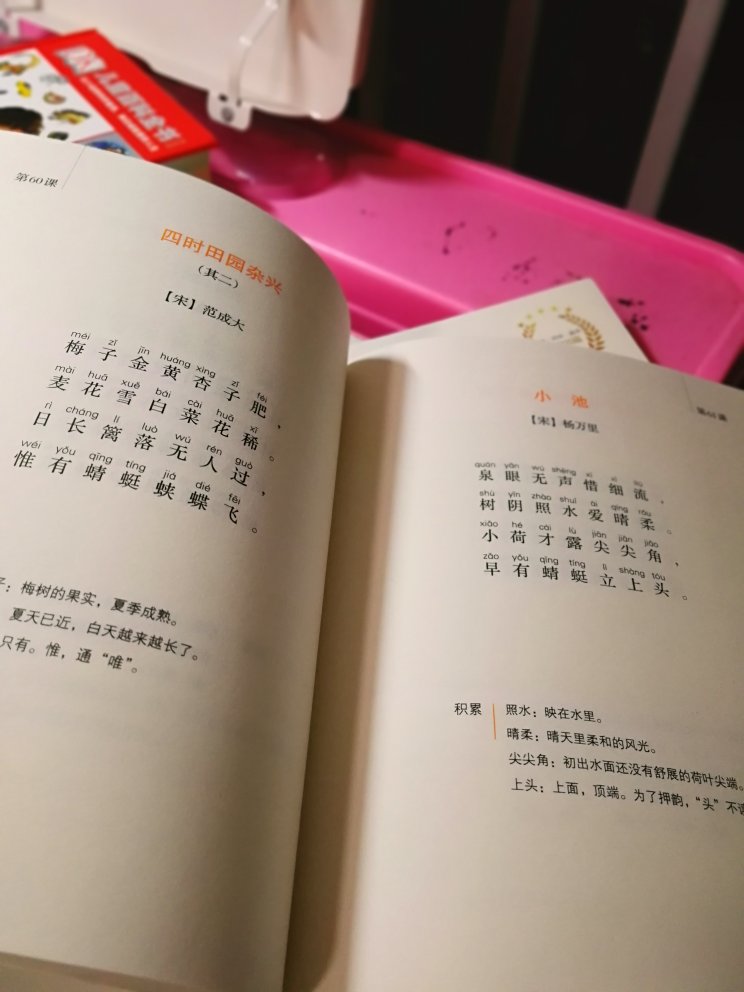 儿童百科全书
第60课
四时田园杂兴
（其二）
【宋】范成大
méi zǐ jīn huáng xìng zǐ féi
梅子金黄杏子肥，
mài huā xuě bái cài huā xī
麦花雪白菜花稀。
rì cháng lí luò wú rén guò
日长篱落无人过，
wéi yǒu qīng tíng jiá dié fēi
惟有蜻蜓蛱蝶飞。
子：梅树的果实，夏季成熟。
夏天已近，白天越来越长了。
只有。惟，通“唯”。
第61课
小池
【宋】杨万里
quán yǎn wú shēng xī xì liú
泉眼无声惜细流，
shù yīn zhào shuǐ ài qíng róu
树阴照水爱晴柔。
xiǎo hé cái lù jiān jiān jiǎo
小荷才露尖尖角，
zǎo yǒu qīng tíng lì shàng tóu
早有蜻蜓立上头。
积累
照水：映在水里。
晴柔：晴天里柔和的风光。
尖尖角：初出水面还没有舒展的荷叶尖端。
上头：上面，顶端。为了押韵，“头”不读